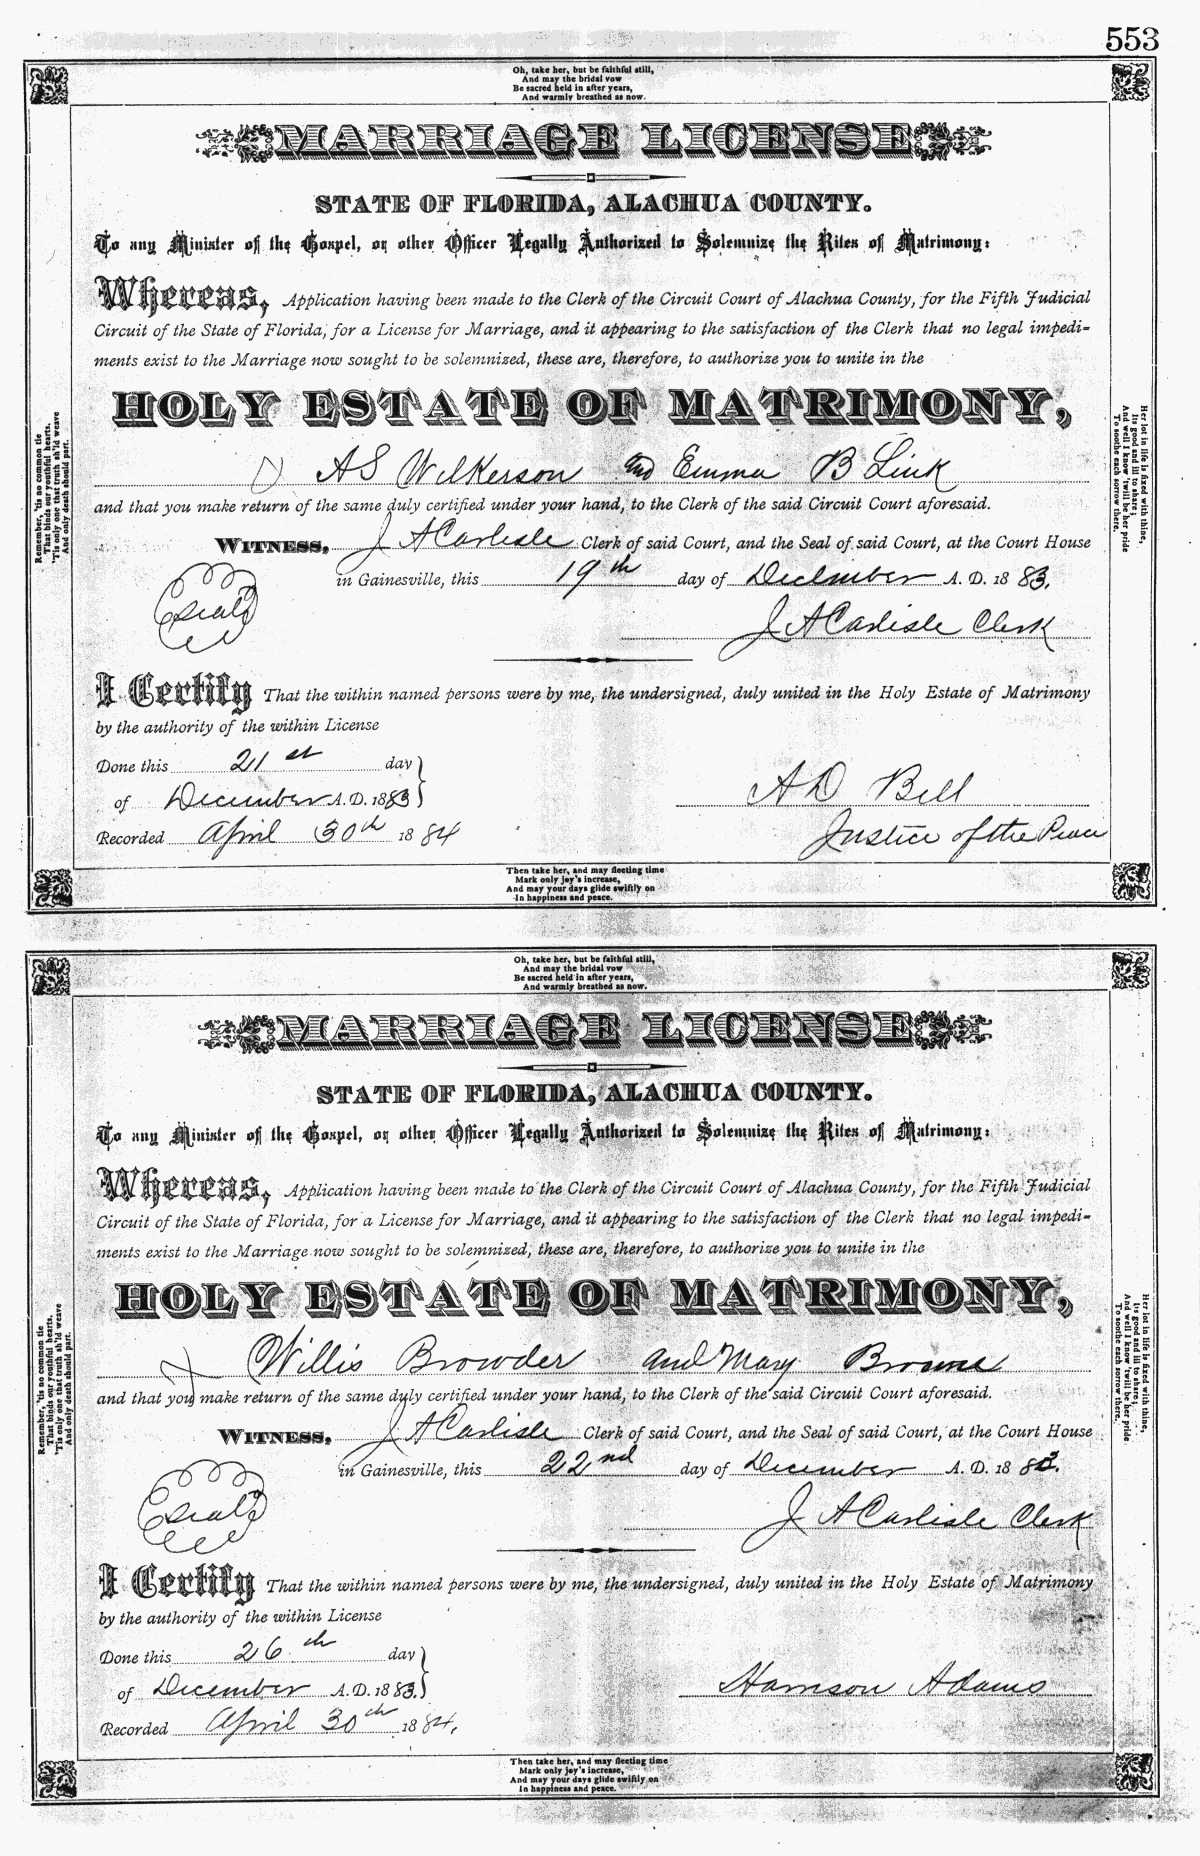 553
Oh, take her, but be faithful still,
And may the bridal vow
Be sacred held in after years,
And warmly breathed as now.
MARRIAGE LICENSE
STATE OF FLORIDA, ALACHUA COUNTY.
To any Minister of the Gospel, or other Officer Legally Authorized to Solemnize the Rites of Matrimony:
Whereas, Application having been made to the Clerk of the Circuit Court of Alachua County, for the Fifth Judicial
Circuit of the State of Florida, for a License for Marriage, and it appearing to the satisfaction of the Clerk that no legal impedi-
ments exist to the Marriage now sought to be solemnized, these are, therefore, to authorize you to unite in the
HOLY ESTATE OF MATRIMONY,
A S Wilkerson and Emma B Link
and that you make return of the same duly certified under your hand, to the Clerk of the said Circuit Court aforesaid.
WITNESS, J A Carlisle Clerk of said Court, and the Seal of said Court, at the Court House
in Gainesville, this 19th day of December A. D. 1883.
Seal
J A Carlisle Clerk
I Certify That the within named persons were by me, the undersigned, duly united in the Holy Estate of Matrimony
by the authority of the within License
Done this 21st day
of December A. D. 1883
A D Bell
Recorded April 30th 1884
Justice of the Peace
Remember, 'tis no common tie
That binds our youthful hearts,
'Tis only one that truth sh'ld weave
And only death should part.
Her lot in life is fixed with thine,
Its good and ill to share;
And well I know 'twill be her pride
To soothe each sorrow there.
Then take her, and may fleeting time
Mark only joy's increase,
And may your days glide swiftly on
In happiness and peace.
Oh, take her, but be faithful still,
And may the bridal vow
Be sacred held in after years,
And warmly breathed as now.
MARRIAGE LICENSE
STATE OF FLORIDA, ALACHUA COUNTY.
To any Minister of the Gospel, or other Officer Legally Authorized to Solemnize the Rites of Matrimony:
Whereas, Application having been made to the Clerk of the Circuit Court of Alachua County, for the Fifth Judicial
Circuit of the State of Florida, for a License for Marriage, and it appearing to the satisfaction of the Clerk that no legal impedi-
ments exist to the Marriage now sought to be solemnized, these are, therefore, to authorize you to unite in the
HOLY ESTATE OF MATRIMONY,
Willis Browder and Mary Browne
and that you make return of the same duly certified under your hand, to the Clerk of the said Circuit Court aforesaid.
WITNESS, J A Carlisle Clerk of said Court, and the Seal of said Court, at the Court House
in Gainesville, this 22nd day of December A. D. 1883.
Seal
J A Carlisle Clerk
I Certify That the within named persons were by me, the undersigned, duly united in the Holy Estate of Matrimony
by the authority of the within License
Done this 26th day
of December A. D. 1883.
Harrison Adams
Recorded April 30th 1884.
Remember, 'tis no common tie
That binds our youthful hearts,
'Tis only one that truth sh'ld weave
And only death should part.
Her lot in life is fixed with thine,
Its good and ill to share;
And well I know 'twill be her pride
To soothe each sorrow there.
Then take her, and may fleeting time
Mark only joy's increase,
And may your days glide swiftly on
In happiness and peace.